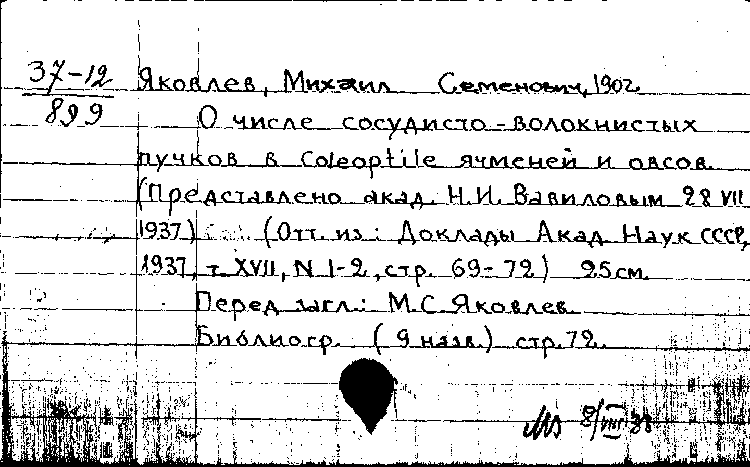 37-12
899
Яковлев, Михаил Семенович, 1902
О числе сосудисто-волокнистых
пучков в Coleoptile ячменей и овсов.
(Представлено акад. Н.И. Вавиловым 28 VII
1937) (Отт. из: Доклады Акад. Наук СССР,
1937, т. XVII, N 1-2, стр. 69-72) 25 см.
Перед загл.: М.С. Яковлев.
Библиогр. (9 назв.) стр. 72.
8/VIII 38